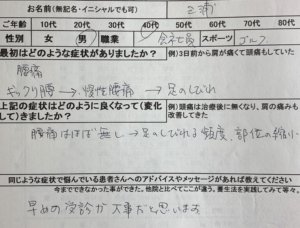 お名前(無記名・イニシャルでも可) 三浦
ご年齢 10代 20代 30代 40代 50代 60代 70代 80代
性別 女 男 職業 会社員 スポーツ ゴルフ
最初はどのような症状がありましたか? 例)3日前から肩が痛くて頭痛もしていた
腰痛
ぎっくり腰→慢性腰痛 → 足のしびれ
上記の症状はどのように良くなって(変化して)きましたか? 例)頭痛は治療後に無くなり、肩の痛みも改善してきた
腰痛はほぼ無し→足のしびれる頻度、部位の縮小
同じような症状で悩んでいる患者さんへのアドバイスやメッセージがあれば教えてください
今までできなかった事ができた。他院と比べてここが違う。養生法を実践してみて等々。
早めの受診が大事だと思います